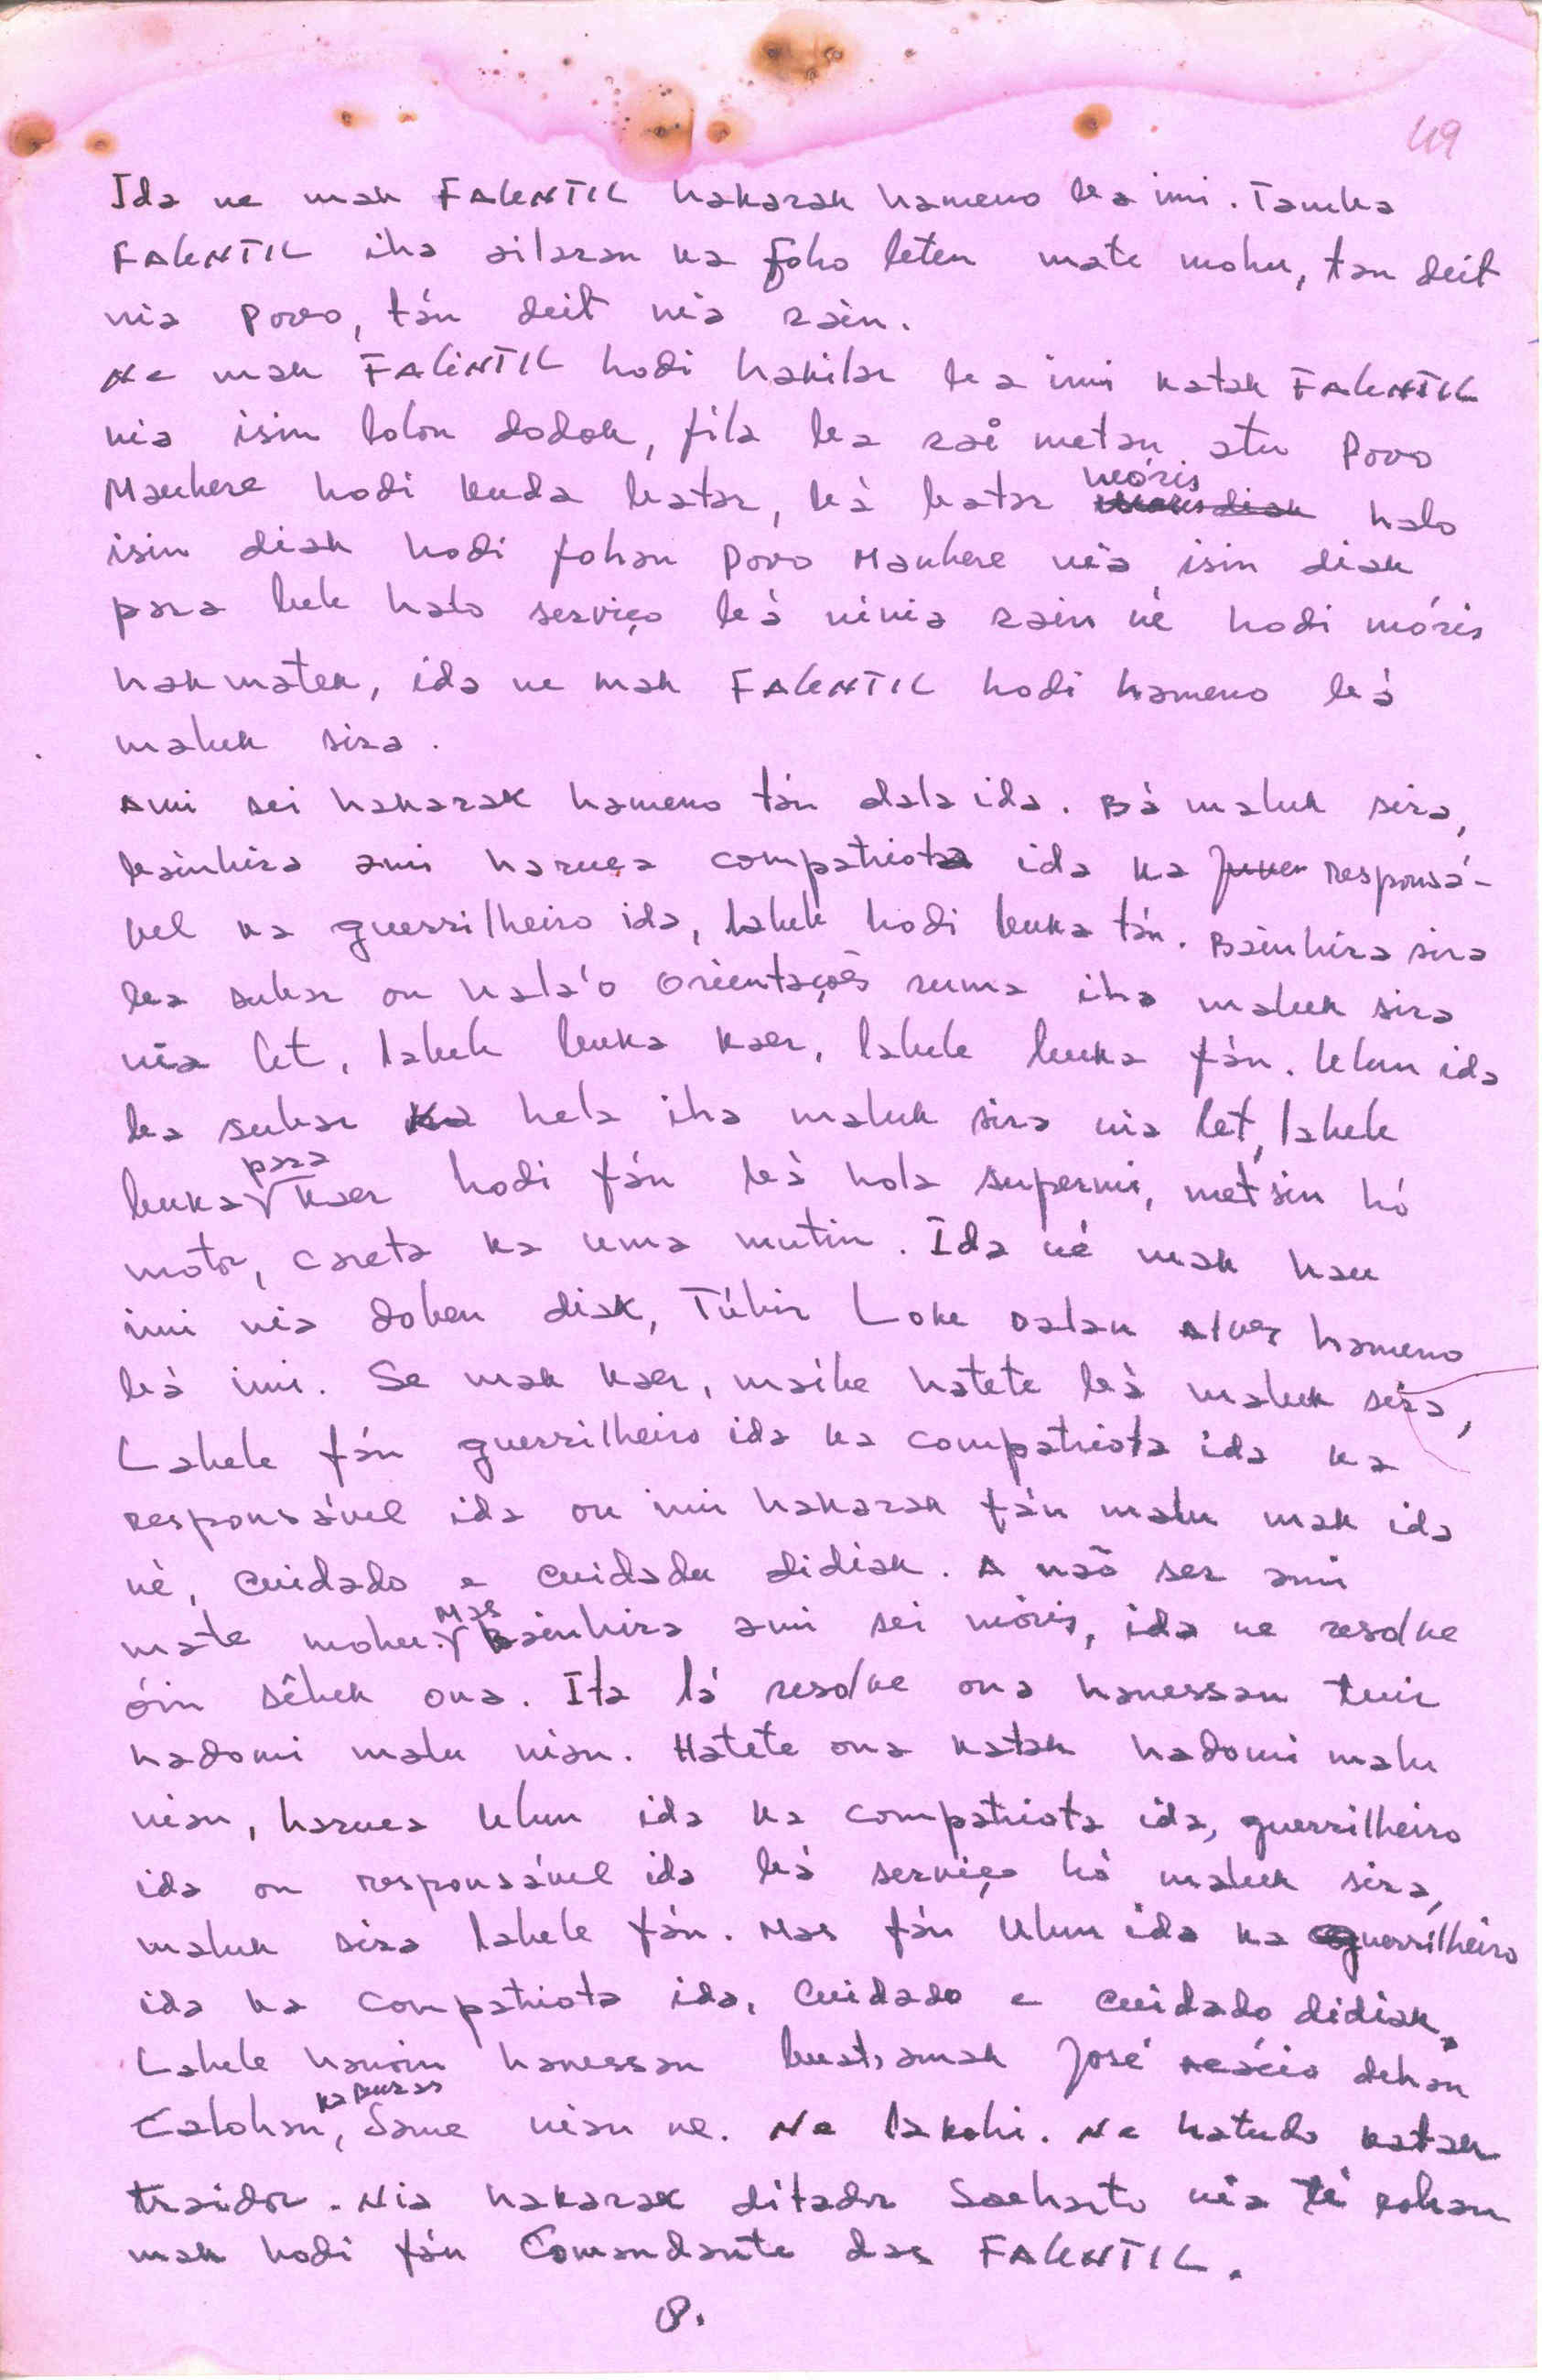 49
Ida ne mak FALINTIL hakarak hameno ba imi. Tamba
FALINTIL iha ailaran ka foho leten mate mohu, tan deit
nia Povo, tán deit nia rain.
Ne mak FALINTIL hodi hakilar ba imi katak FALINTIL
nia isin lolon dodok, fila ba rai metan atu Povo
Maubere hodi kuda batar, bá batar móris halo
isin diak hodi fohan Povo Maubere nia isin diak
para bele halo serviço bá ninia rain né hodi móris
hakmatek, ida ne mak FALINTIL hodi hameno bá
maluk sira.
Ami sei hakarak hameno tán dala ida. Bá maluk sira,
bainhira ami haruca compatriota ida ka responsá-
vel ka guerrilheiro ida, labele hodi buka tán. Bainhira sira
ba subar ou hala'o orientações ruma iha maluk sira
nia let, labele buka kaer, labele buka fán. Ulun ida
ba subar hela iha maluk sira nia let, labele
buka para kaer hodi fán bá hola supermi, metsin hó
motor, careta ka uma mutin. Ida né mak hau
imi nia doben diak, Túbir Loke Dalan Alves hameno
bá imi. Se mak kaer, maibe hatete bá maluk sira,
Labele fán guerrilheiro ida ka compatriota ida ka
responsável ida ou imi hakarak fán malu mak ida
né, cuidado e cuidadu didiak. A não ser ami
mate mohu. Mas bainhira ami sei móris, ida ne resolve
óin sêluk ona. Ita lá resolve ona hanessan tuir
hadomi malu nian. Hatete ona katak hadomi malu
nian, haruca ulun ida ka compatriota ida, guerrilheiro
ida ou responsável ida bá serviço hó maluk sira,
maluk sira labele fán. Mas fán Ulun ida ka guerrilheiro
ida ka compatriota ida, cuidado e cuidado didiak.
Labele hanoin hanessan buat, amak José Acácio dehan
Calohan, kaburas Same nian ne. Ne lakohi. Ne hatudo katak
traidor. Nia hakarak ditador Soeharto nia té rohan
mak hodi fán Comandante das FALINTIL.
8.